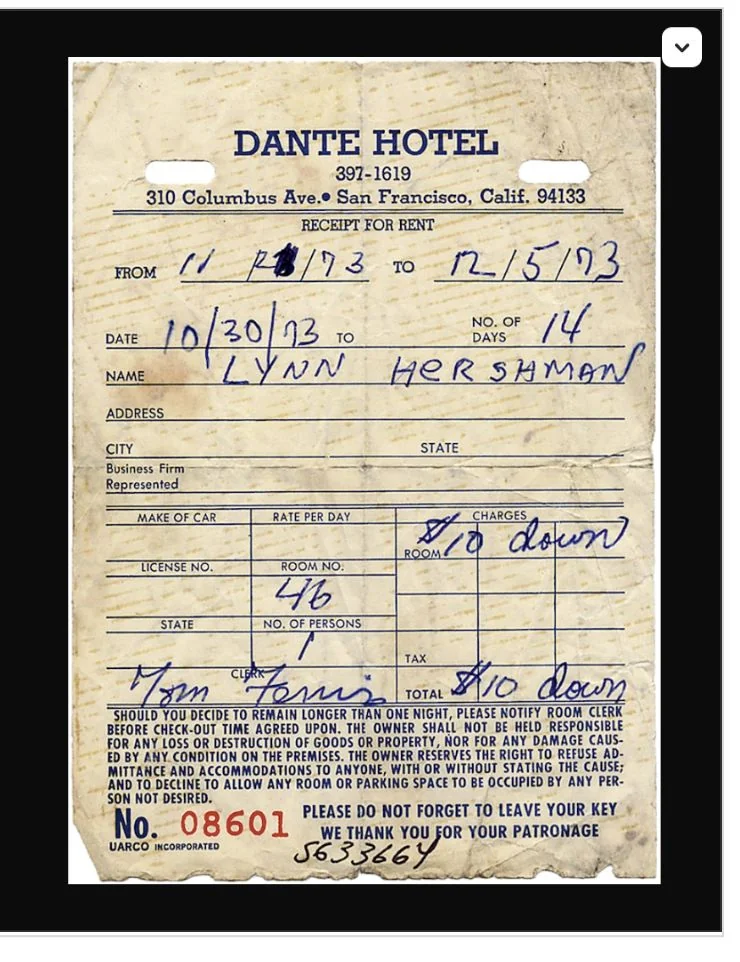 DANTE HOTEL
397-1619
310 Columbus Ave.• San Francisco, Calif. 94133
RECEIPT FOR RENT
FROM 11 /73 TO 12/5/73
DATE 10/30/73 TO NO. OF DAYS 14
NAME LYNN HERSHMAN
ADDRESS
CITY STATE
Business Firm
Represented
MAKE OF CAR RATE PER DAY CHARGES
ROOM $10 down
LICENSE NO. ROOM NO.
46
STATE NO. OF PERSONS
1
TAX
CLERK
Tom TOTAL $10 down
SHOULD YOU DECIDE TO REMAIN LONGER THAN ONE NIGHT, PLEASE NOTIFY ROOM CLERK
BEFORE CHECK-OUT TIME AGREED UPON. THE OWNER SHALL NOT BE HELD RESPONSIBLE
FOR ANY LOSS OR DESTRUCTION OF GOODS OR PROPERTY, NOR FOR ANY DAMAGE CAUS-
ED BY ANY CONDITION ON THE PREMISES. THE OWNER RESERVES THE RIGHT TO REFUSE AD-
MITTANCE AND ACCOMMODATIONS TO ANYONE, WITH OR WITHOUT STATING THE CAUSE;
AND TO DECLINE TO ALLOW ANY ROOM OR PARKING SPACE TO BE OCCUPIED BY ANY PER-
SON NOT DESIRED.
No. 08601 PLEASE DO NOT FORGET TO LEAVE YOUR KEY
WE THANK YOU FOR YOUR PATRONAGE
UARCO INCORPORATED
5633664